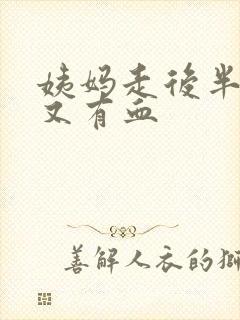 姨妈走後半
又有血
善解人衣的獅